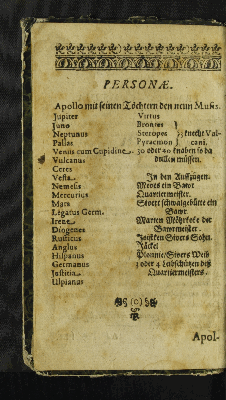 PERSONÆ.
Apollo mit seinen Töchtern den neun Musis.
Jupiter
Juno
Neptunus
Pallas
Venus cum Cupidine
Vulcanus
Ceres
Vesta
Nemesis
Mercurius
Mars
Legatus Germ.
Irene
Diogenes
Rusticus
Anglus
Hispanus
Germanus
Justitia
Ulpianus
Virtus
Brontes
Steropes
Pyracmon
knecht Vul-
cani.
30 oder 40 knaben so da
müssen.
In den Auffzügen.
Mewes ein Bawr
Quartiermeister.
Sivert ein
Bawr
Marten der
Bawrmeister.
Sivers Sohn.
Jäckel
Sivers Weib
3 oder 4 Leibschützen deß
Quartiermeisters.
(o)
Apol-